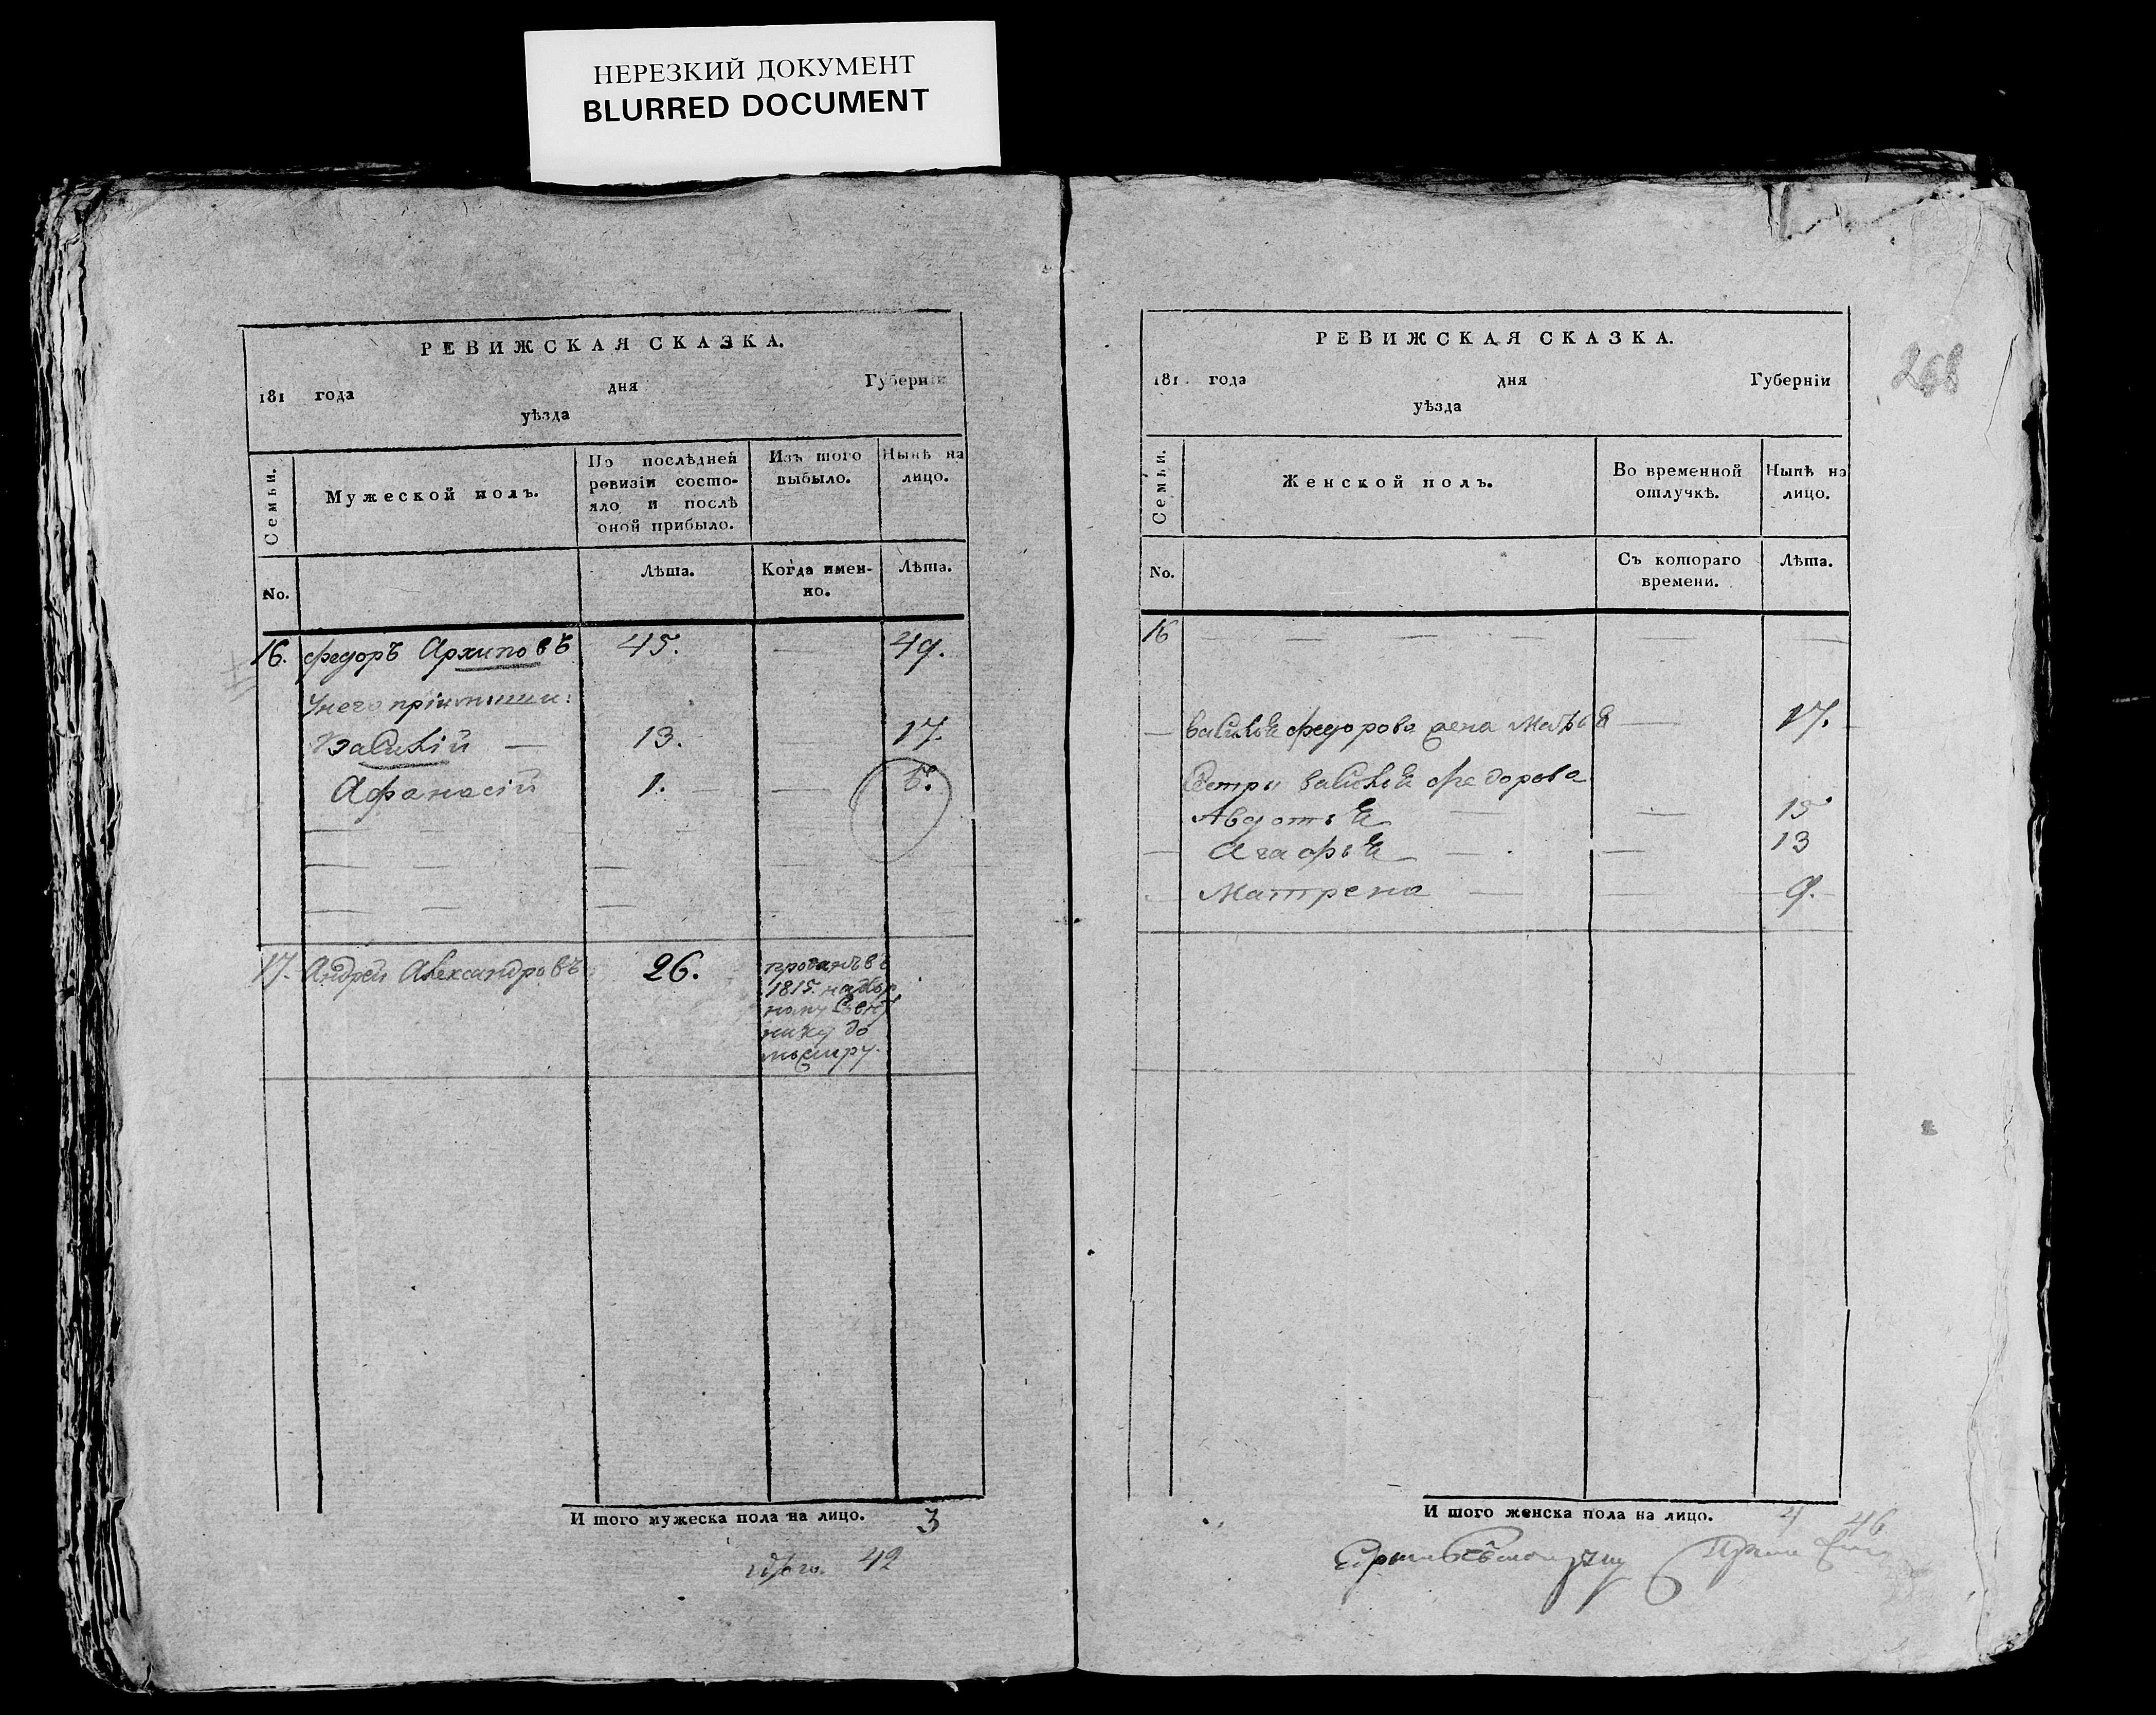 НЕРЕЗКИЙ ДОКУМЕНТ
BLURRED DOCUMENT
РЕВИЖСКАЯ СКАЗКА.
181 года дня Губерніи
уѣзда
Семьи.
Мужеской полъ.
По послѣдней
ревизіи состо-
яло и послѣ
оной прибыло.
Изъ того
выбыло.
Нынѣ на
лицо.
No.
Лѣта.
Когда имен-
но.
Лѣта.
16. федоръ Архиповъ 45. 49.
Унего пріимыши:
Василій 13. 17.
Афанасій 1. 5.
17. Андрей Александровъ 26.
проданъ въ
1815. надвор
ному
нику до
И того мужеска пола на лицо. 3
Итого. 42
РЕВИЖСКАЯ СКАЗКА.
181 года дня Губерніи
уѣзда
268
Семьи.
Женской полъ.
Во временной
отлучкѣ.
Нынѣ на
лицо.
No.
Съ котораго
времени.
Лѣта.
16
василья федорова жена 17.
Сестры василья федорова
Авдотья 15
Агафья 13
Матрена 9.
И того женска пола на лицо. 4 46